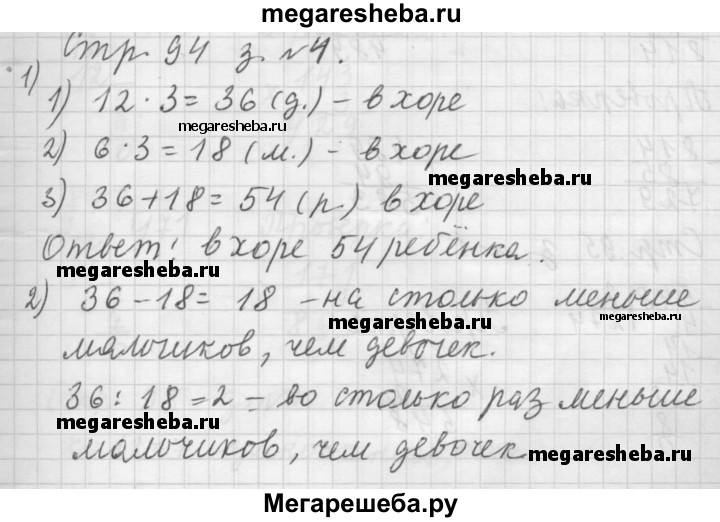 megaresheba.ru
Стр. 94 з. №4.
1)
1) 12 · 3 = 36 (д.) – в хоре
megaresheba.ru
2) 6 · 3 = 18 (м.) – в хоре
megaresheba.ru
3) 36 + 18 = 54 (р.) в хоре
Ответ: в хоре 54 ребёнка.
megaresheba.ru
megaresheba.ru
2) 36 – 18 = 18 – на столько меньше
megaresheba.ru
megaresheba.ru
мальчиков, чем девочек.
36 : 18 = 2 – во столько раз меньше
megaresheba.ru
megaresheba.ru
мальчиков, чем девочек
megaresheba.ru
Мегарешеба.ру